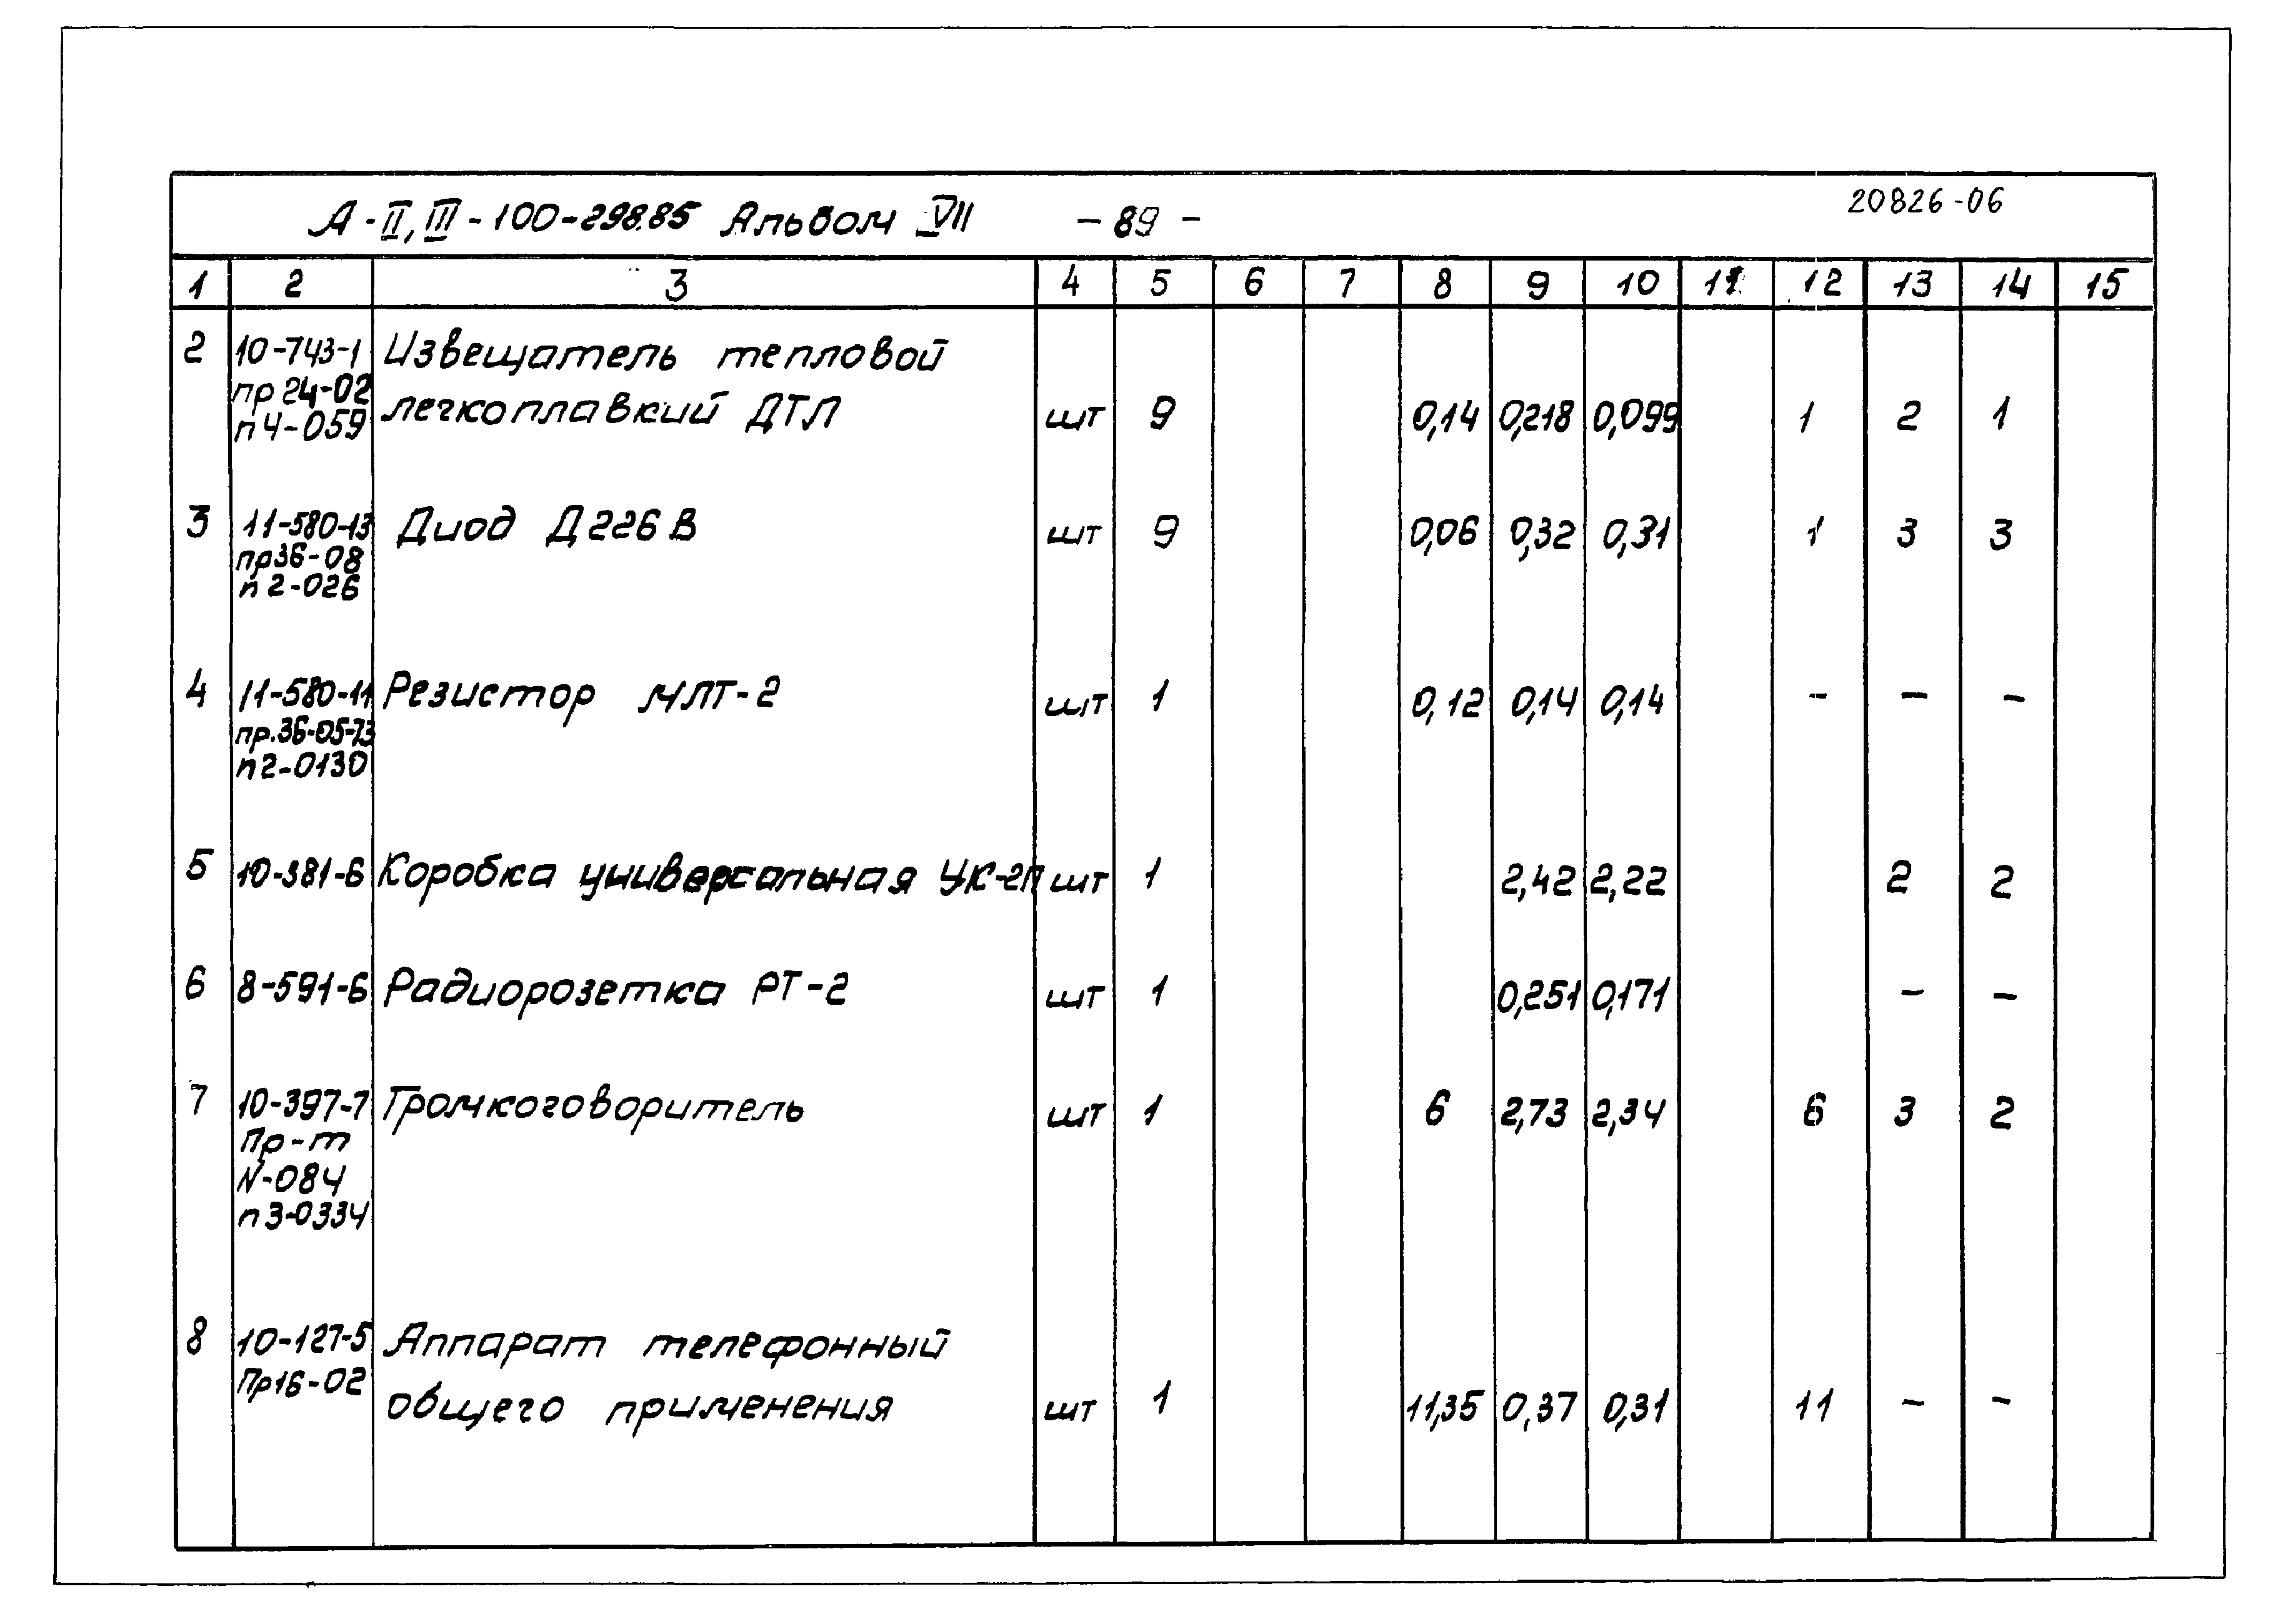 А-II, III-100-298.85 Альбом VII - 89 - 20826-06
1 2 3 4 5 6 7 8 9 10 11 12 13 14 15
2 10-743-1 Извещатель тепловой
пр 24-02
п4-059 легкоплавкий ДТЛ шт 9 0,14 0,218 0,099 1 2 1
3 11-580-13 Диод Д226В шт 9 0,06 0,32 0,31 1 3 3
пр36-08
п2-026
4 11-580-11 Резистор МЛТ-2 шт 1 0,12 0,14 0,14 - - -
пр.36-05-73
п2-0130
5 10-381-6 Коробка универсальная УК-2П шт 1 2,42 2,22 2 2
6 8-591-6 Радиорозетка РТ-2 шт 1 0,251 0,171 - -
7 10-397-7 Громкоговоритель шт 1 6 2,73 2,34 6 3 2
Пр-т
N-084
п3-0334
8 10-127-5 Аппарат телефонный
Пр16-02 общего применения шт 1 11,35 0,37 0,31 11 - -